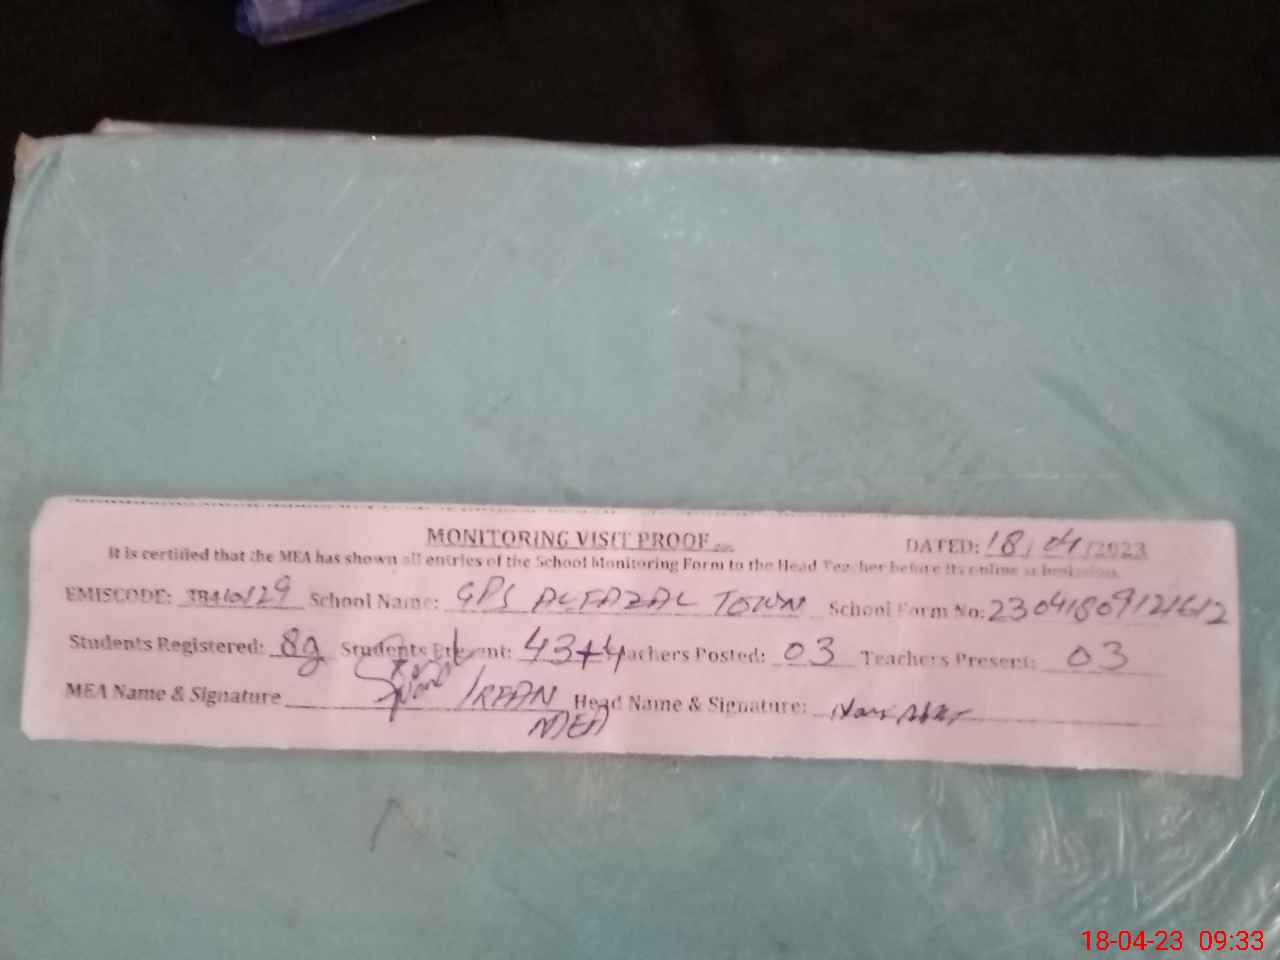 MONITORING VISIT PROOF
DATED: 18/04/2023
It is certified that the MEA has shown all entries of the School Monitoring Form to the Head Teacher before its online submission.
EMISCODE: School Name: GPS ALFAZAL TOWN School Form No: 23041809121612
Students Registered: 89 Students Present: 43+4 Teachers Posted: 03 Teachers Present: 03
MEA Name & Signature IRFAN Head Name & Signature:
MEA
18-04-23 09:33